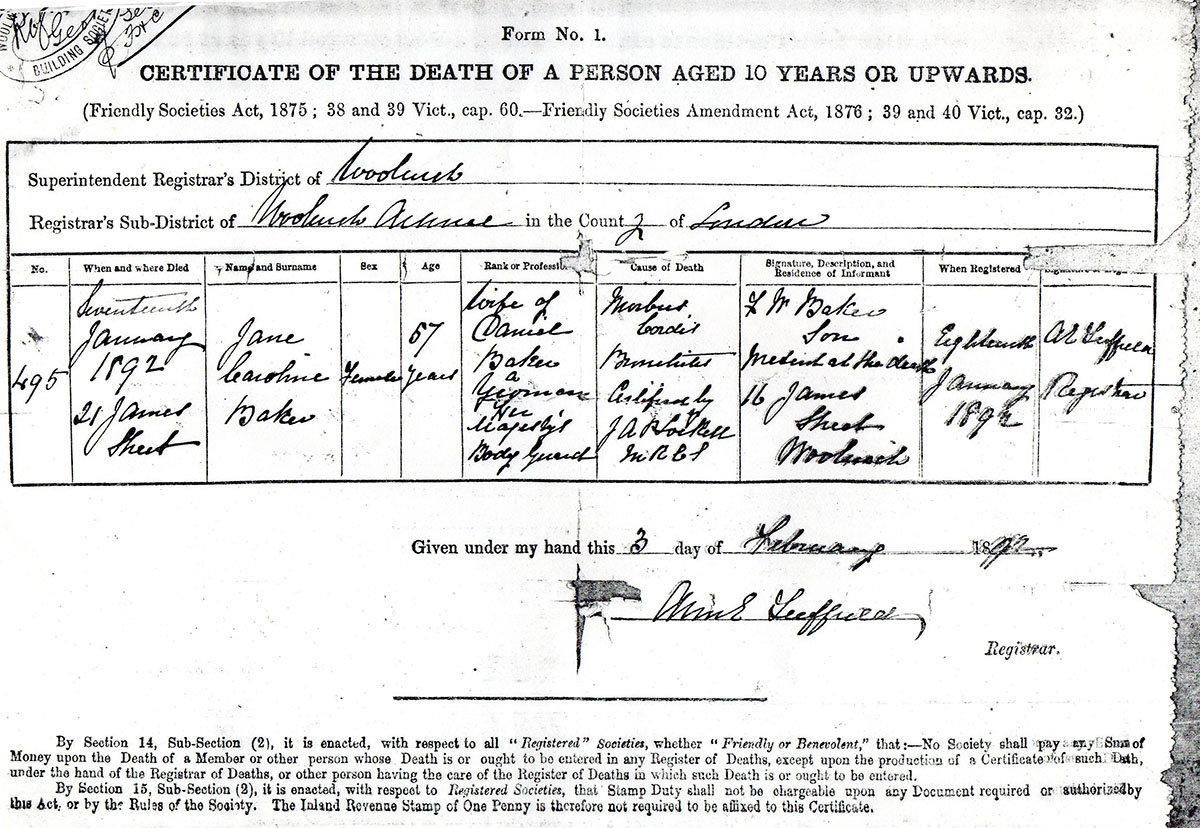 WOOLW
BUILDING SOCIETY
Form No. 1.
CERTIFICATE OF THE DEATH OF A PERSON AGED 10 YEARS OR UPWARDS.
(Friendly Societies Act, 1875; 38 and 39 Vict., cap. 60.—Friendly Societies Amendment Act, 1876; 39 and 40 Vict., cap. 32.)
Superintendent Registrar's District of Woolwich
Registrar's Sub-District of Woolwich Arsenal in the County of London
No.
When and where Died
Name and Surname
Sex
Age
Rank or Professi
Cause of Death
Signature, Description, and
Residence of Informant
When Registered
495
Seventeenth
January
1892
21 James
Street
Jane
Caroline
Baker
Female
57
years
Wife of
Daniel
Baker
a
Yeoman
Her
Majesty's
Body Guard
Morbus
Cordis
Bronchitis
Certified by
M R C S
F W Baker
Son
Present at the death
16 James
Street
Woolwich
Eighteenth
January
1892
Registrar
Given under my hand this 3 day of February 1892
Registrar.
By Section 14, Sub-Section (2), it is enacted, with respect to all "Registered" Societies, whether "Friendly or Benevolent," that:—No Society shall pay any Sum of
Money upon the Death of a Member or other person whose Death is or ought to be entered in any Register of Deaths, except upon the production of a Certificate of such Death,
under the hand of the Registrar of Deaths, or other person having the care of the Register of Deaths in which such Death is or ought to be entered.
By Section 15, Sub-Section (2), it is enacted, with respect to Registered Societies, that Stamp Duty shall not be chargeable upon any Document required or authorized by
this Act, or by the Rules of the Society. The Inland Revenue Stamp of One Penny is therefore not required to be affixed to this Certificate.